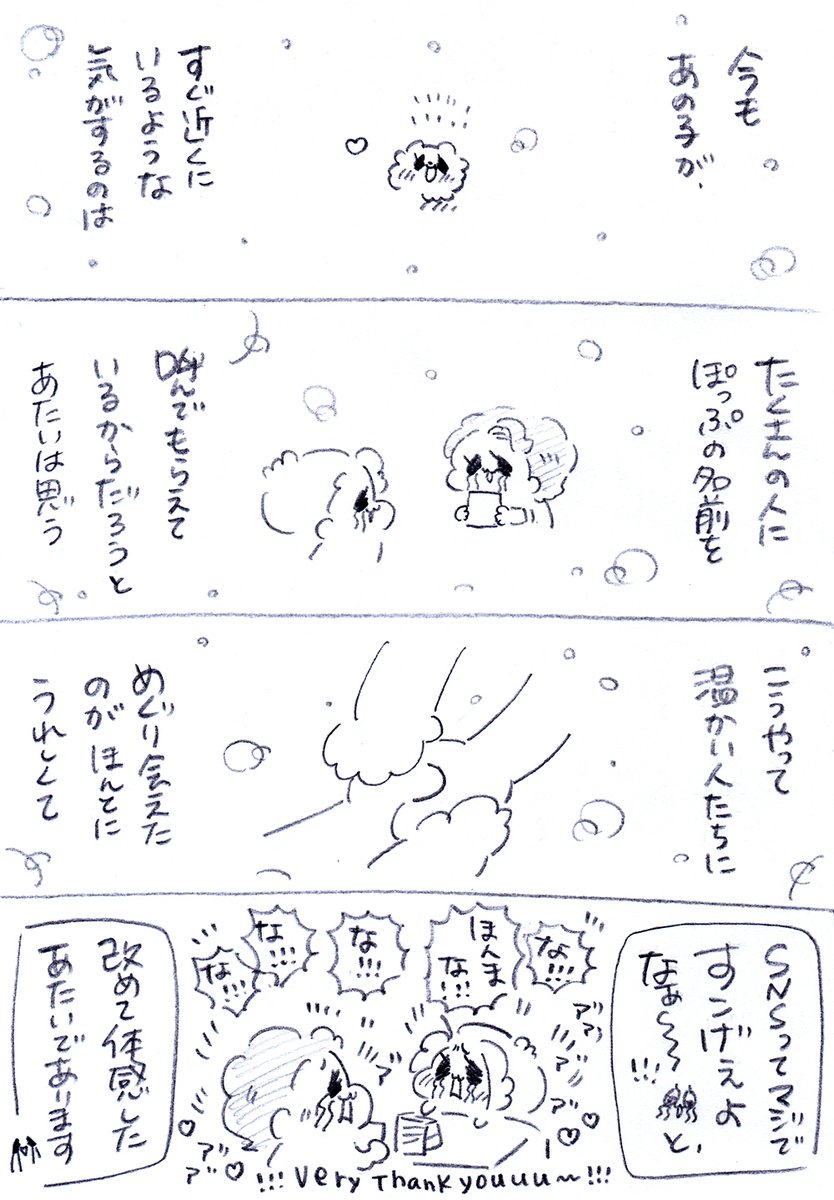 今も
あの子が、
すぐ近くに
いるような
気がするのは
たくさんの人に
ぽっぷの名前を
呼んでもらえて
いるからだろうと
あたいは思う
こうやって
温かい人たちに
めぐり会えた
のがほんとに
うれしくて
SNSってマジで
すこげえよ
なぁ〜〜!!!と、
な!!!
ほんま
な!!!
な!!!
な!!!
な!!!
アア
アア
ア"
ア"
アア
ア"
改めて体感した
あたいであります
!!! Very Thank youuu〜!!!